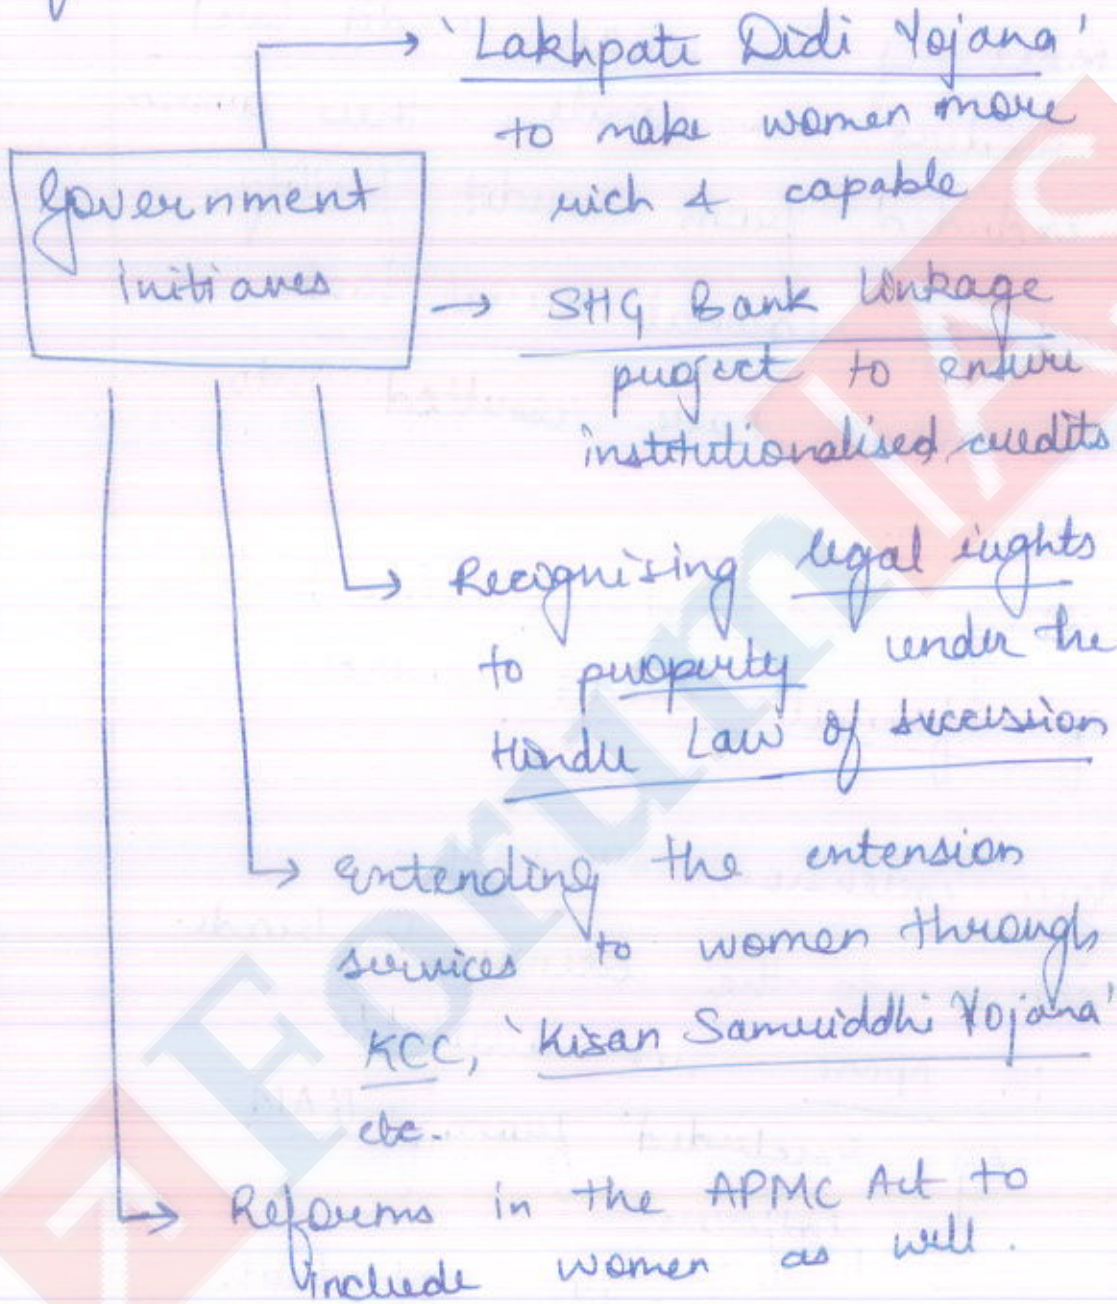 'Lakhpati Didi Yojana'
to make women more
rich & capable
Government
initiaves
→ SHG Bank Linkage
project to ensure
institutionalised credits
Recognising legal rights
to property under the
Hindu Law of succession
Extending the extension
services to women through
KCC, 'Kisan Samriddhi Yojana'
etc.
Reforms in the APMC Act to
include women as well.
Forum IAS